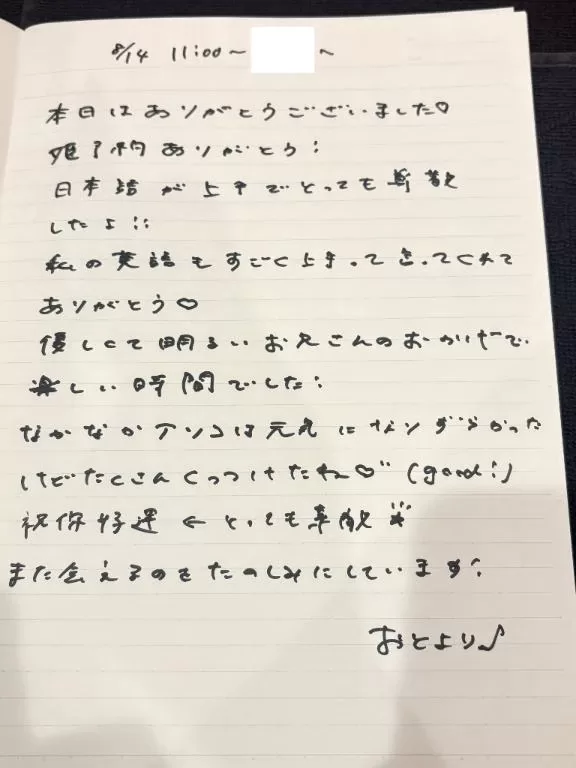 8/14 11:00～ ～
本日はありがとうございました♡
ありがとう!
日本語が上手でとっても
したよ!!
私の英語もすごく上手って言ってくれて
ありがとう♡
優しくて明るいお兄さんのおかげで、
楽しい時間でした!
なかなかアソコは元気になりずらかった
けどたくさんくっつけたね♡ (good!)
祝你好運 ← とっても
また会えるのをたのしみにしています!
おとより♪